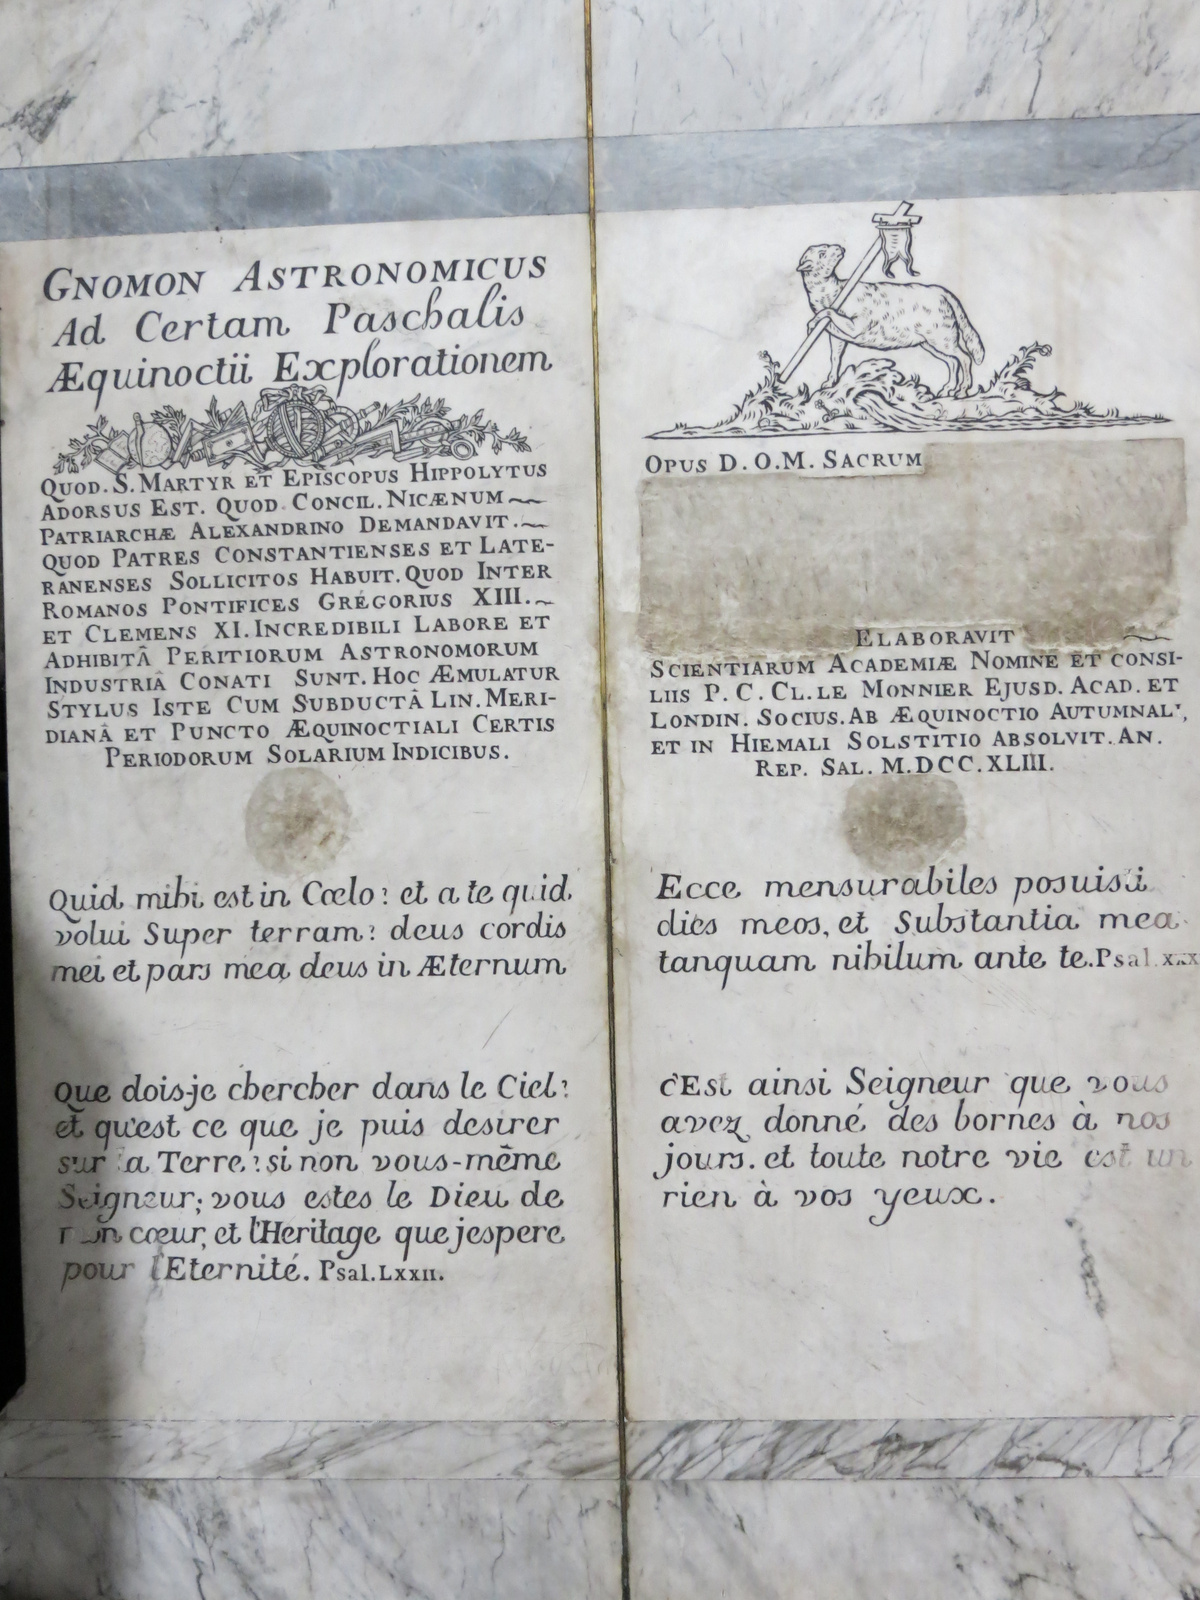 GNOMON ASTRONOMICUS
Ad Certam Paschalis
Æquinoctii Explorationem
QUOD. S. MARTYR ET EPISCOPUS HIPPOLYTUS
ADORSUS EST. QUOD. CONCIL. NICÆNUM
PATRIARCHÆ ALEXANDRINO DEMANDAVIT.
QUOD PATRES CONSTANTIENSES ET LATE-
RANENSES SOLLICITOS HABUIT. QUOD INTER
ROMANOS PONTIFICES GREGORIUS XIII.
ET CLEMENS XI. INCREDIBILI LABORE ET
ADHIBITÂ PERITIORUM ASTRONOMORUM
INDUSTRIÂ CONATI SUNT. HOC ÆMULATUR
STYLUS ISTE CUM SUBDUCTÂ LIN. MERI-
DIANÂ ET PUNCTO ÆQUINOCTIALI CERTIS
PERIODORUM SOLARIUM INDICIBUS.
Quid mihi est in Cœlo? et a te quid
volui Super terram? deus cordis
mei et pars mea deus in Æternum
Que dois-je chercher dans le Ciel?
et qu'est ce que je puis desirer
sur la Terre? si non vous-même
Seigneur; vous estes le Dieu de
mon cœur, et l'Heritage que jespere
pour l'Eternité. Psal. LXXII.
OPUS D. O. M. SACRUM
ELABORAVIT
SCIENTIARUM ACADEMIÆ NOMINE ET CONSI-
LIIS P. C. CL. LE MONNIER EJUSD. ACAD. ET
LONDIN. SOCIUS. AB ÆQUINOCTIO AUTUMNAL',
ET IN HIEMALI SOLSTITIO ABSOLVIT. AN.
REP. SAL. M.DCC.XLIII.
Ecce mensurabiles posuisti
dies meos, et Substantia mea
tanquam nihilum ante te. Psal.
c'Est ainsi Seigneur que vous
avez donné des bornes à nos
jours. et toute notre vie est un
rien à vos yeux.